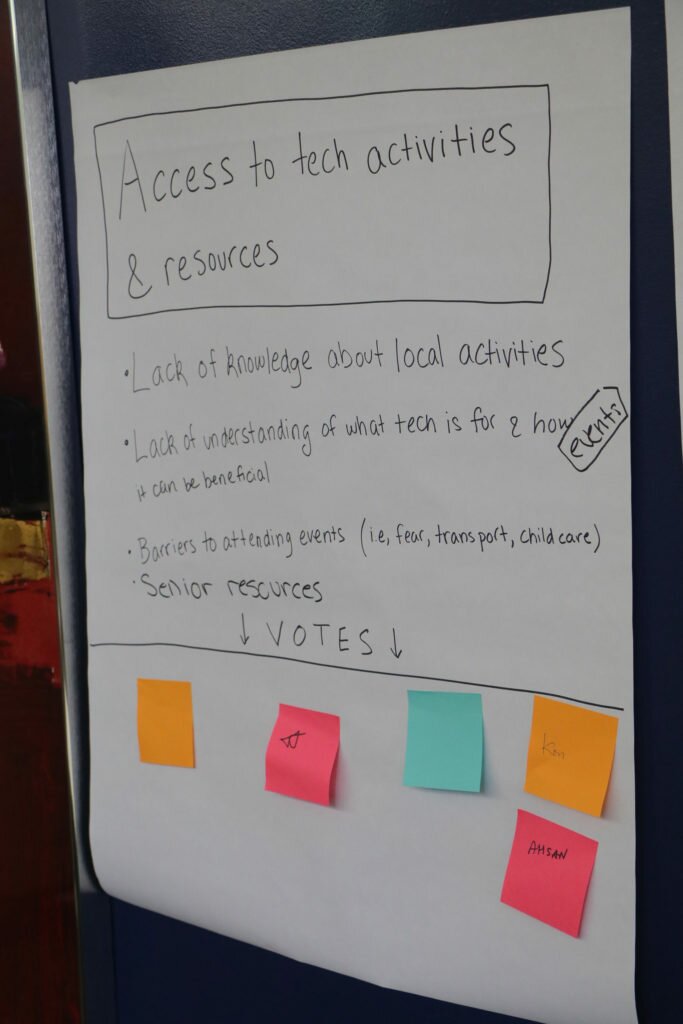 Access to tech activities
& resources
• Lack of knowledge about local activities
• Lack of understanding of what tech is for & how
events
it can be beneficial
• Barriers to attending events (i.e, fear, transport, child care)
• Senior resources
↓ VOTES ↓
Ken
AHSAN